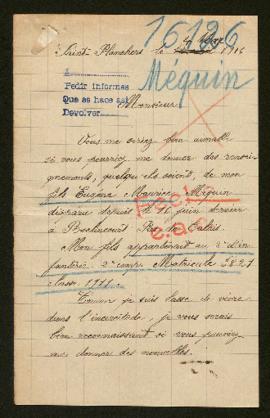 16126
Saint-Planchers le 4 1916
Méquin
A
Pedir informes
Que se hace saber
Devolver
Monsieur
Vous me seriez bien aimable
si vous pourriez me donner des rensei-
gnements, quelqu'ils soient, de mon
fils Eugène Maurice Méquin
disparu depuis le 11 juin dernier
à Pas de Calais.
Mon fils appartenait au 2e d'In-
fanterie 2e comp. Matricule 5827
classe 1911.
je suis lasse de vivre
dans l'incertitude, je vous serais
bien reconnaissant si vous pouviez
me donner des nouvelles.